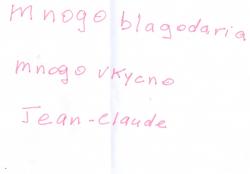 Mnogo blagodaria
mnogo vkycno
Jean-claude